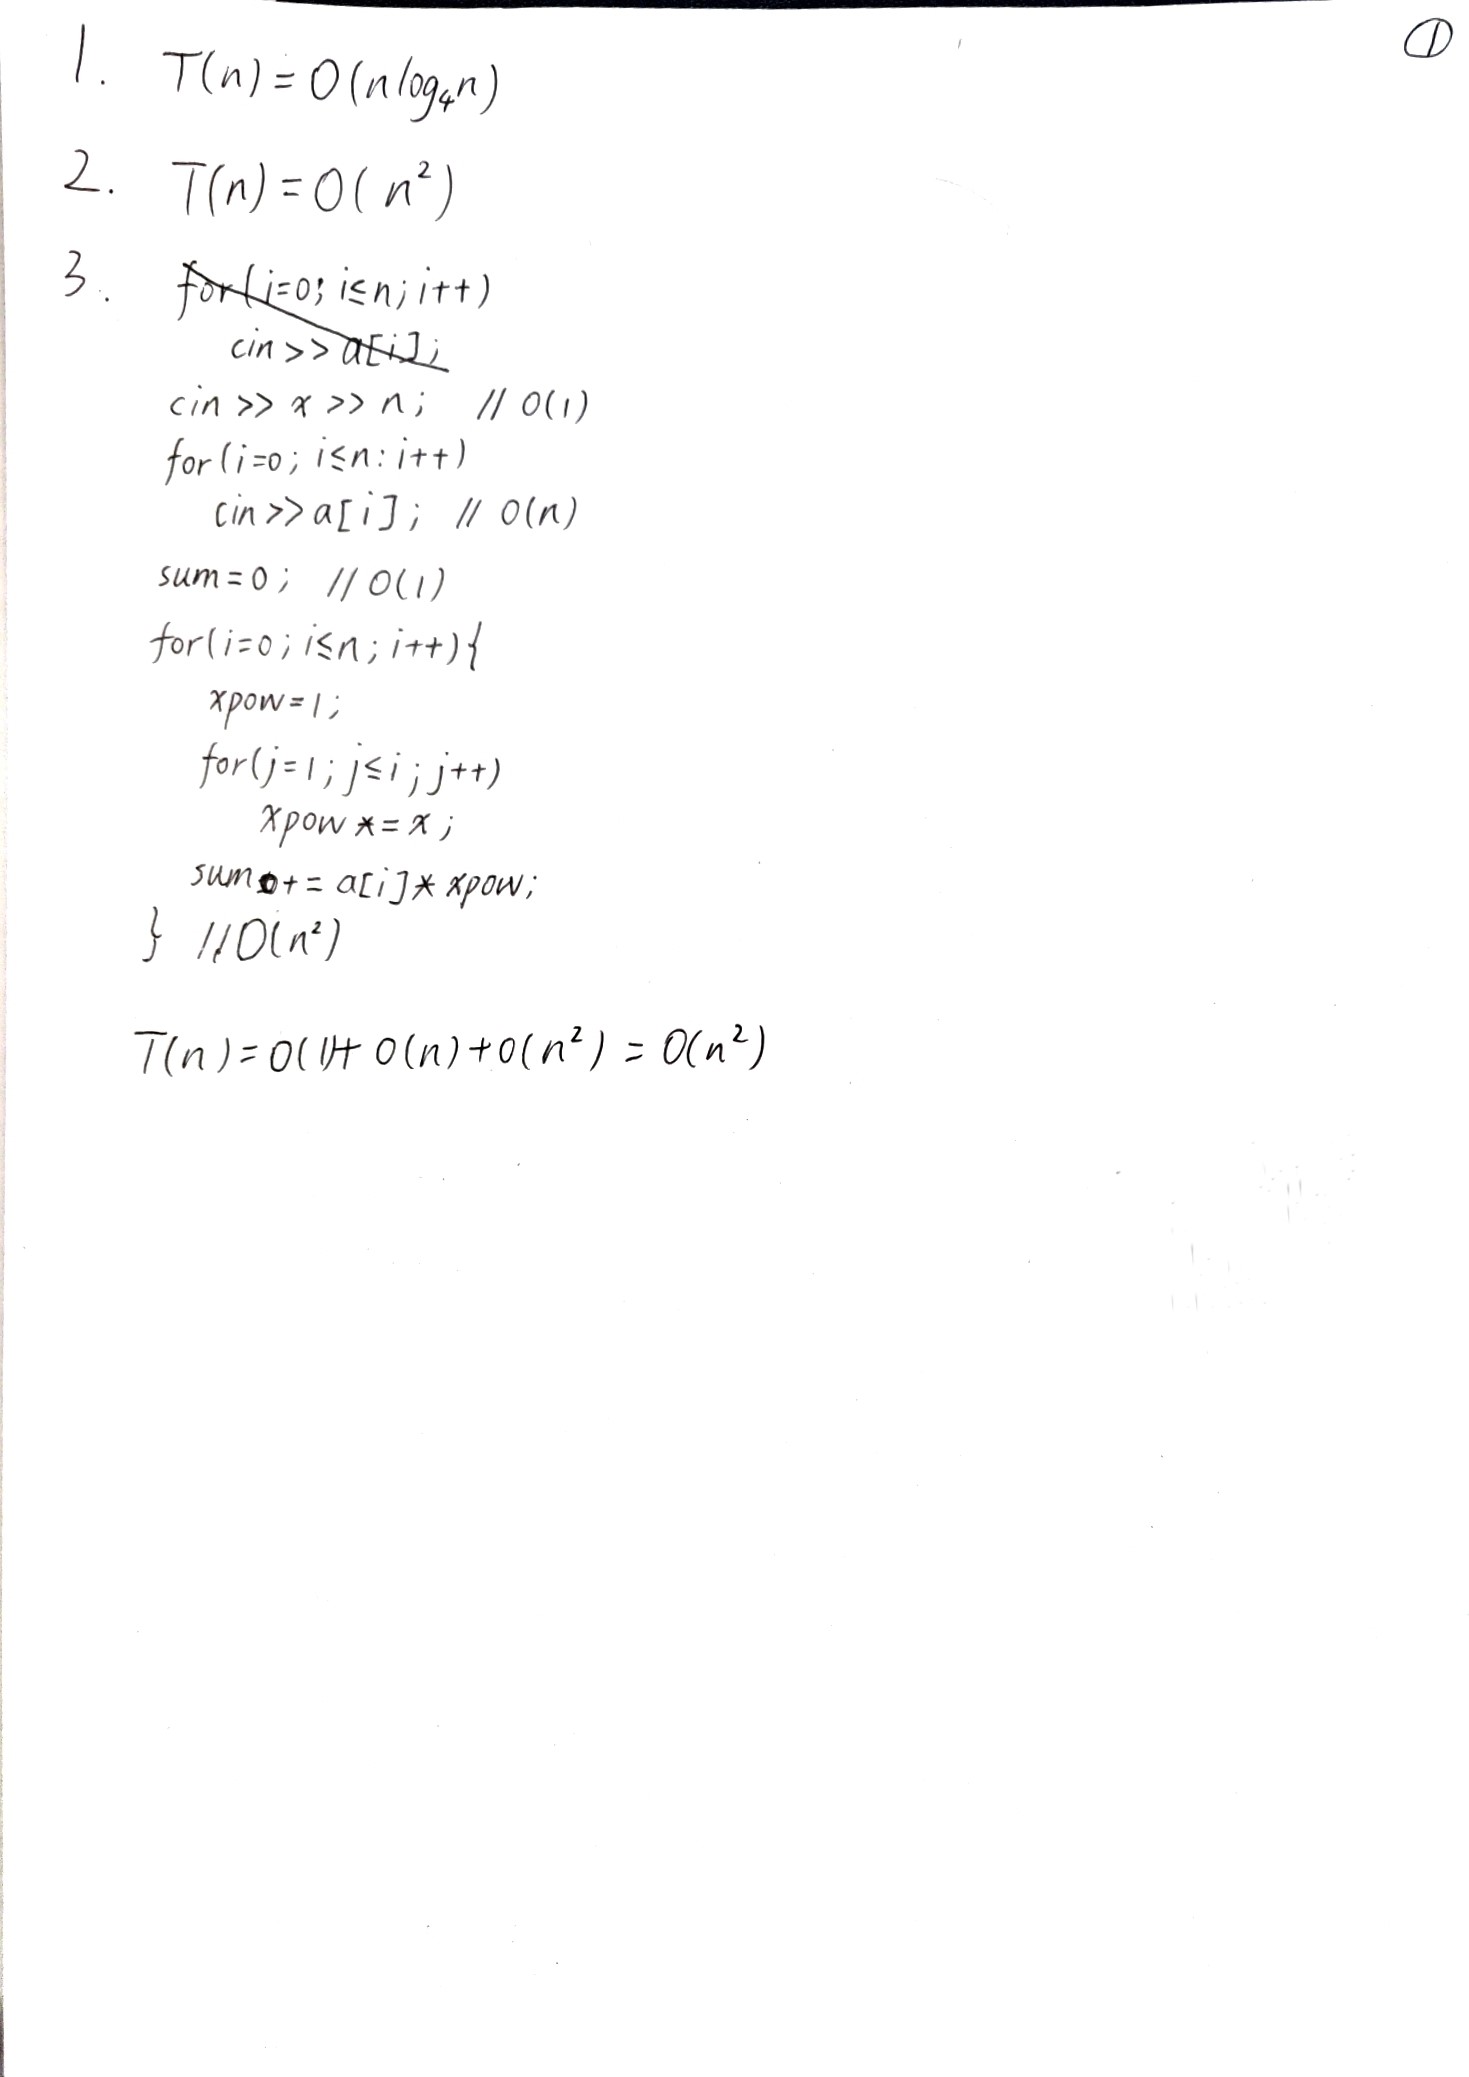 ①
1. T(n)=O(nlog₄n)
2. T(n)=O(n²)
3. for(i=0; i≤n; i++)
cin>>a[i];
cin>>x>>n; //O(1)
for(i=0; i≤n: i++)
cin>>a[i]; //O(n)
sum=0; //O(1)
for(i=0; i≤n; i++){
xpow=1;
for(j=1; j≤i; j++)
xpow*=x;
sum+=a[i]*xpow;
} //O(n²)
T(n)=O(1)+O(n)+O(n²)=O(n²)